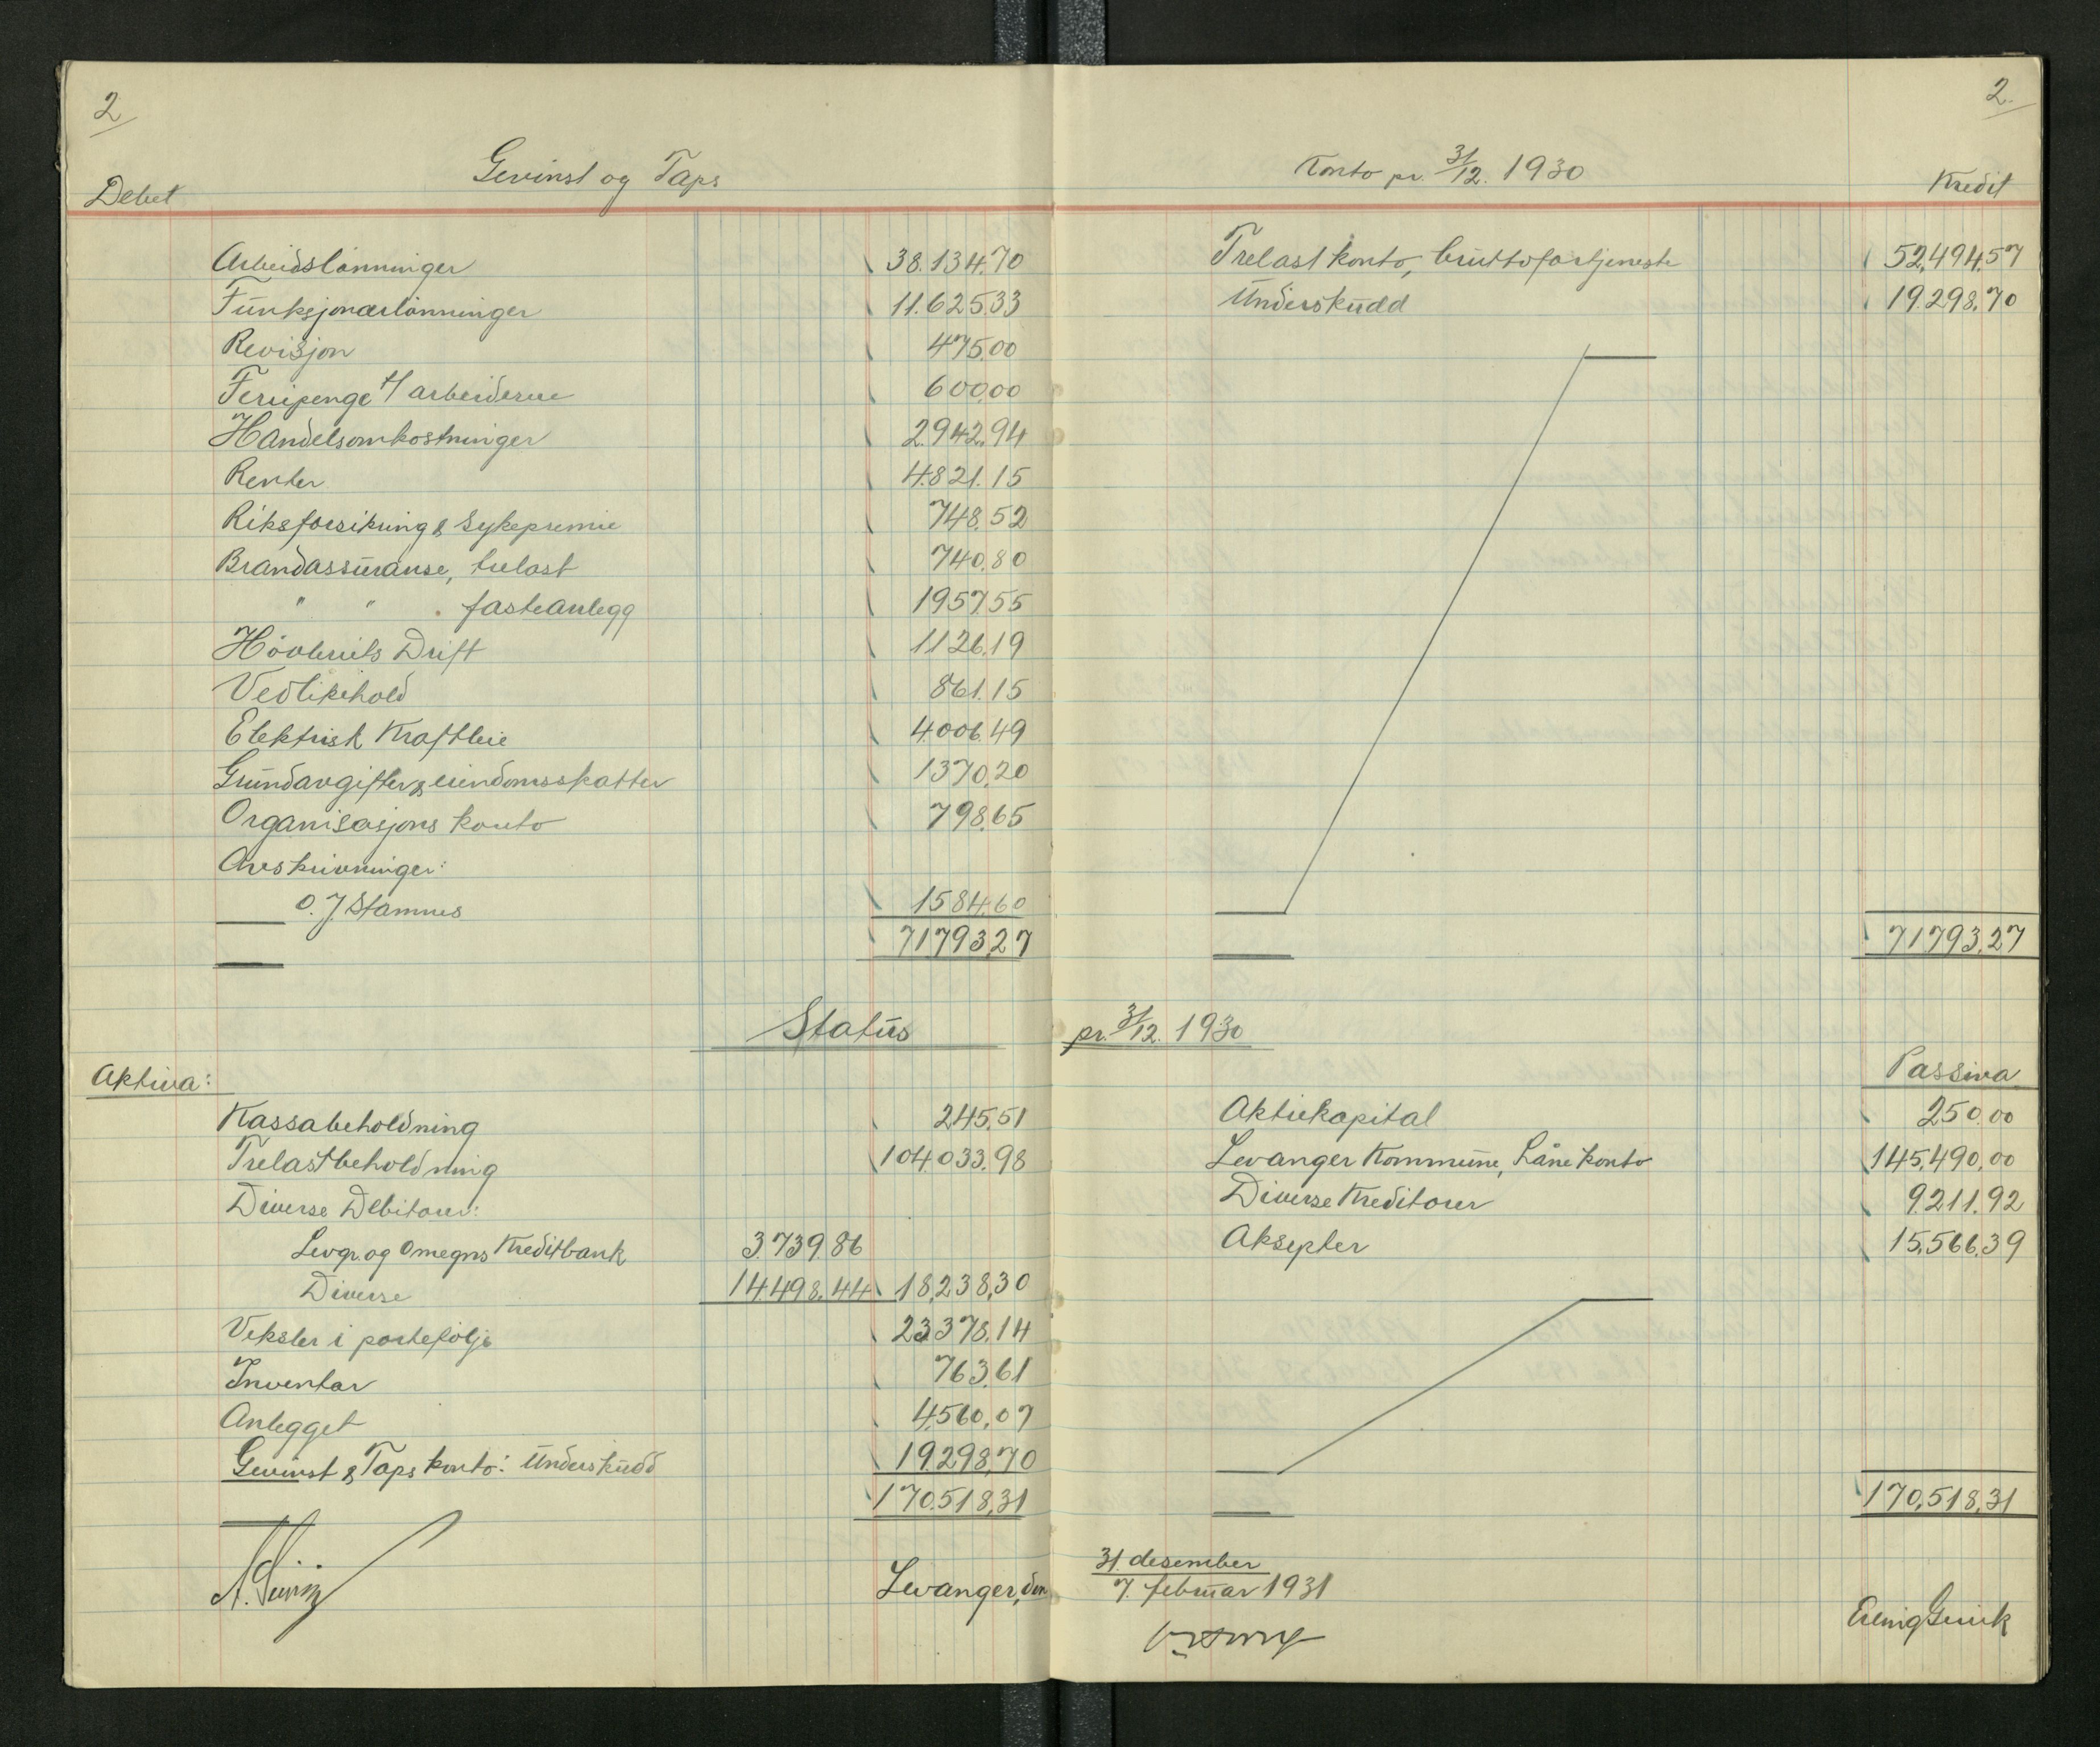 2
Gevinst og Taps
Debet
Arbeidslønninger 38.134.70
Funksjonærlønninger 11.625.33
Revisjon 475.00
Feriepenge t/ arbeiderne 600.00
Handelsomkostninger 2.942.94
Renter 4.821.15
Riksforsikring & Sykepremie 748.52
Brandassuranse, trelast 740.80
" " . faste anlegg 1957.55
Høvleriets Drift 1126.19
Vedlikehold 861.15
Elektrisk Kraftleie 4.006.49
Grundavgifter & eiendomsskatter 1370.20
Organisasjons konto 798.65
Avskrivninger:
O. J. Stamnes 1584.60
71.793.27
Status
Aktiva:
Kassabeholdning 245.51
Trelastbeholdning 104.033.98
Diverse Debitorer:
Levgr. og Omegns Kreditbank 3.739.86
Diverse 14.498.44 18.238.30
Veksler i portefølje 23.378.14
Inventar 763.61
Anlegget 4.560.07
Gevinst & Taps konto: Underskudd 19.298.70
170.518.31
Levanger, den
2.
Konto pr. 31/12. 1930
Kredit
Trelast konto, bruttofortjeneste 52,494.57
Underskudd 19.298.70
71793.27
pr. 31/12. 1930
Passiva
Aktiekapital 250.00
Levanger Kommune, Låne konto 145.490.00
Diverse Kreditorer 9.211.92
Aksepter 15.566.39
170.518.31
31. desember
7. februar 1931